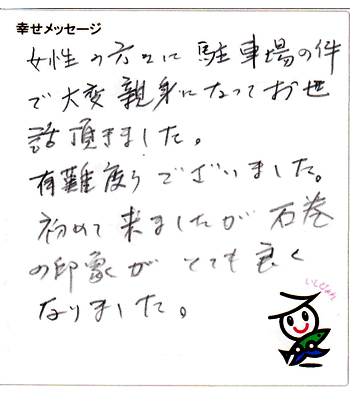 幸せメッセージ
女性の方々に駐車場の件
で大変親身になってお世
話頂きました。
有難度うございました。
初めて来ましたが石巻
の印象がとても良く
なりました。